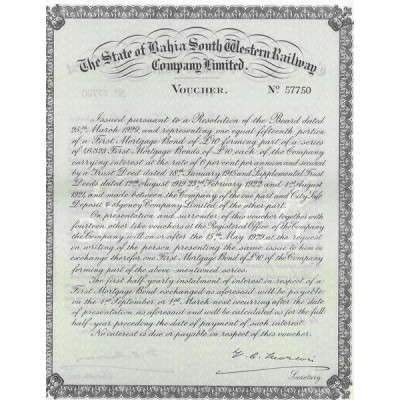 The State of Bahia South Western Railway
Company Limited.
VOUCHER. Nº 57750
Issued pursuant to a Resolution of the Board dated
25th March 1929 and representing one equal fifteenth portion
of a First Mortgage Bond of £10 forming part of a series
of First Mortgage Bonds of £10 each of the Company
carrying interest at the rate of 6 per cent per annum and secured
by a Trust Deed dated 18th January 1915 and Supplemental Trust
Deeds dated 19th August 1919 23rd February 1922 and 1st August
1924 made between the Company of the one part and City Safe
Deposit & Agency Company Limited of the other part.
On presentation and surrender of this voucher together with
fourteen other like vouchers at the Registered Office of the Company
the Company will on or after the 15th May 1929 at the request
in writing of the person presenting the same issue to him in
exchange therefor one First Mortgage Bond of £10 of the Company
forming part of the above mentioned series.
The first half-yearly instalment of interest in respect of a
First Mortgage Bond exchanged as aforesaid will be payable
on the 1st September or 1st March next occurring after the date
of presentation as aforesaid and will be calculated as for the full
half-year preceding the date of payment of such interest.
No interest is due or payable in respect of this voucher.
Secretary.